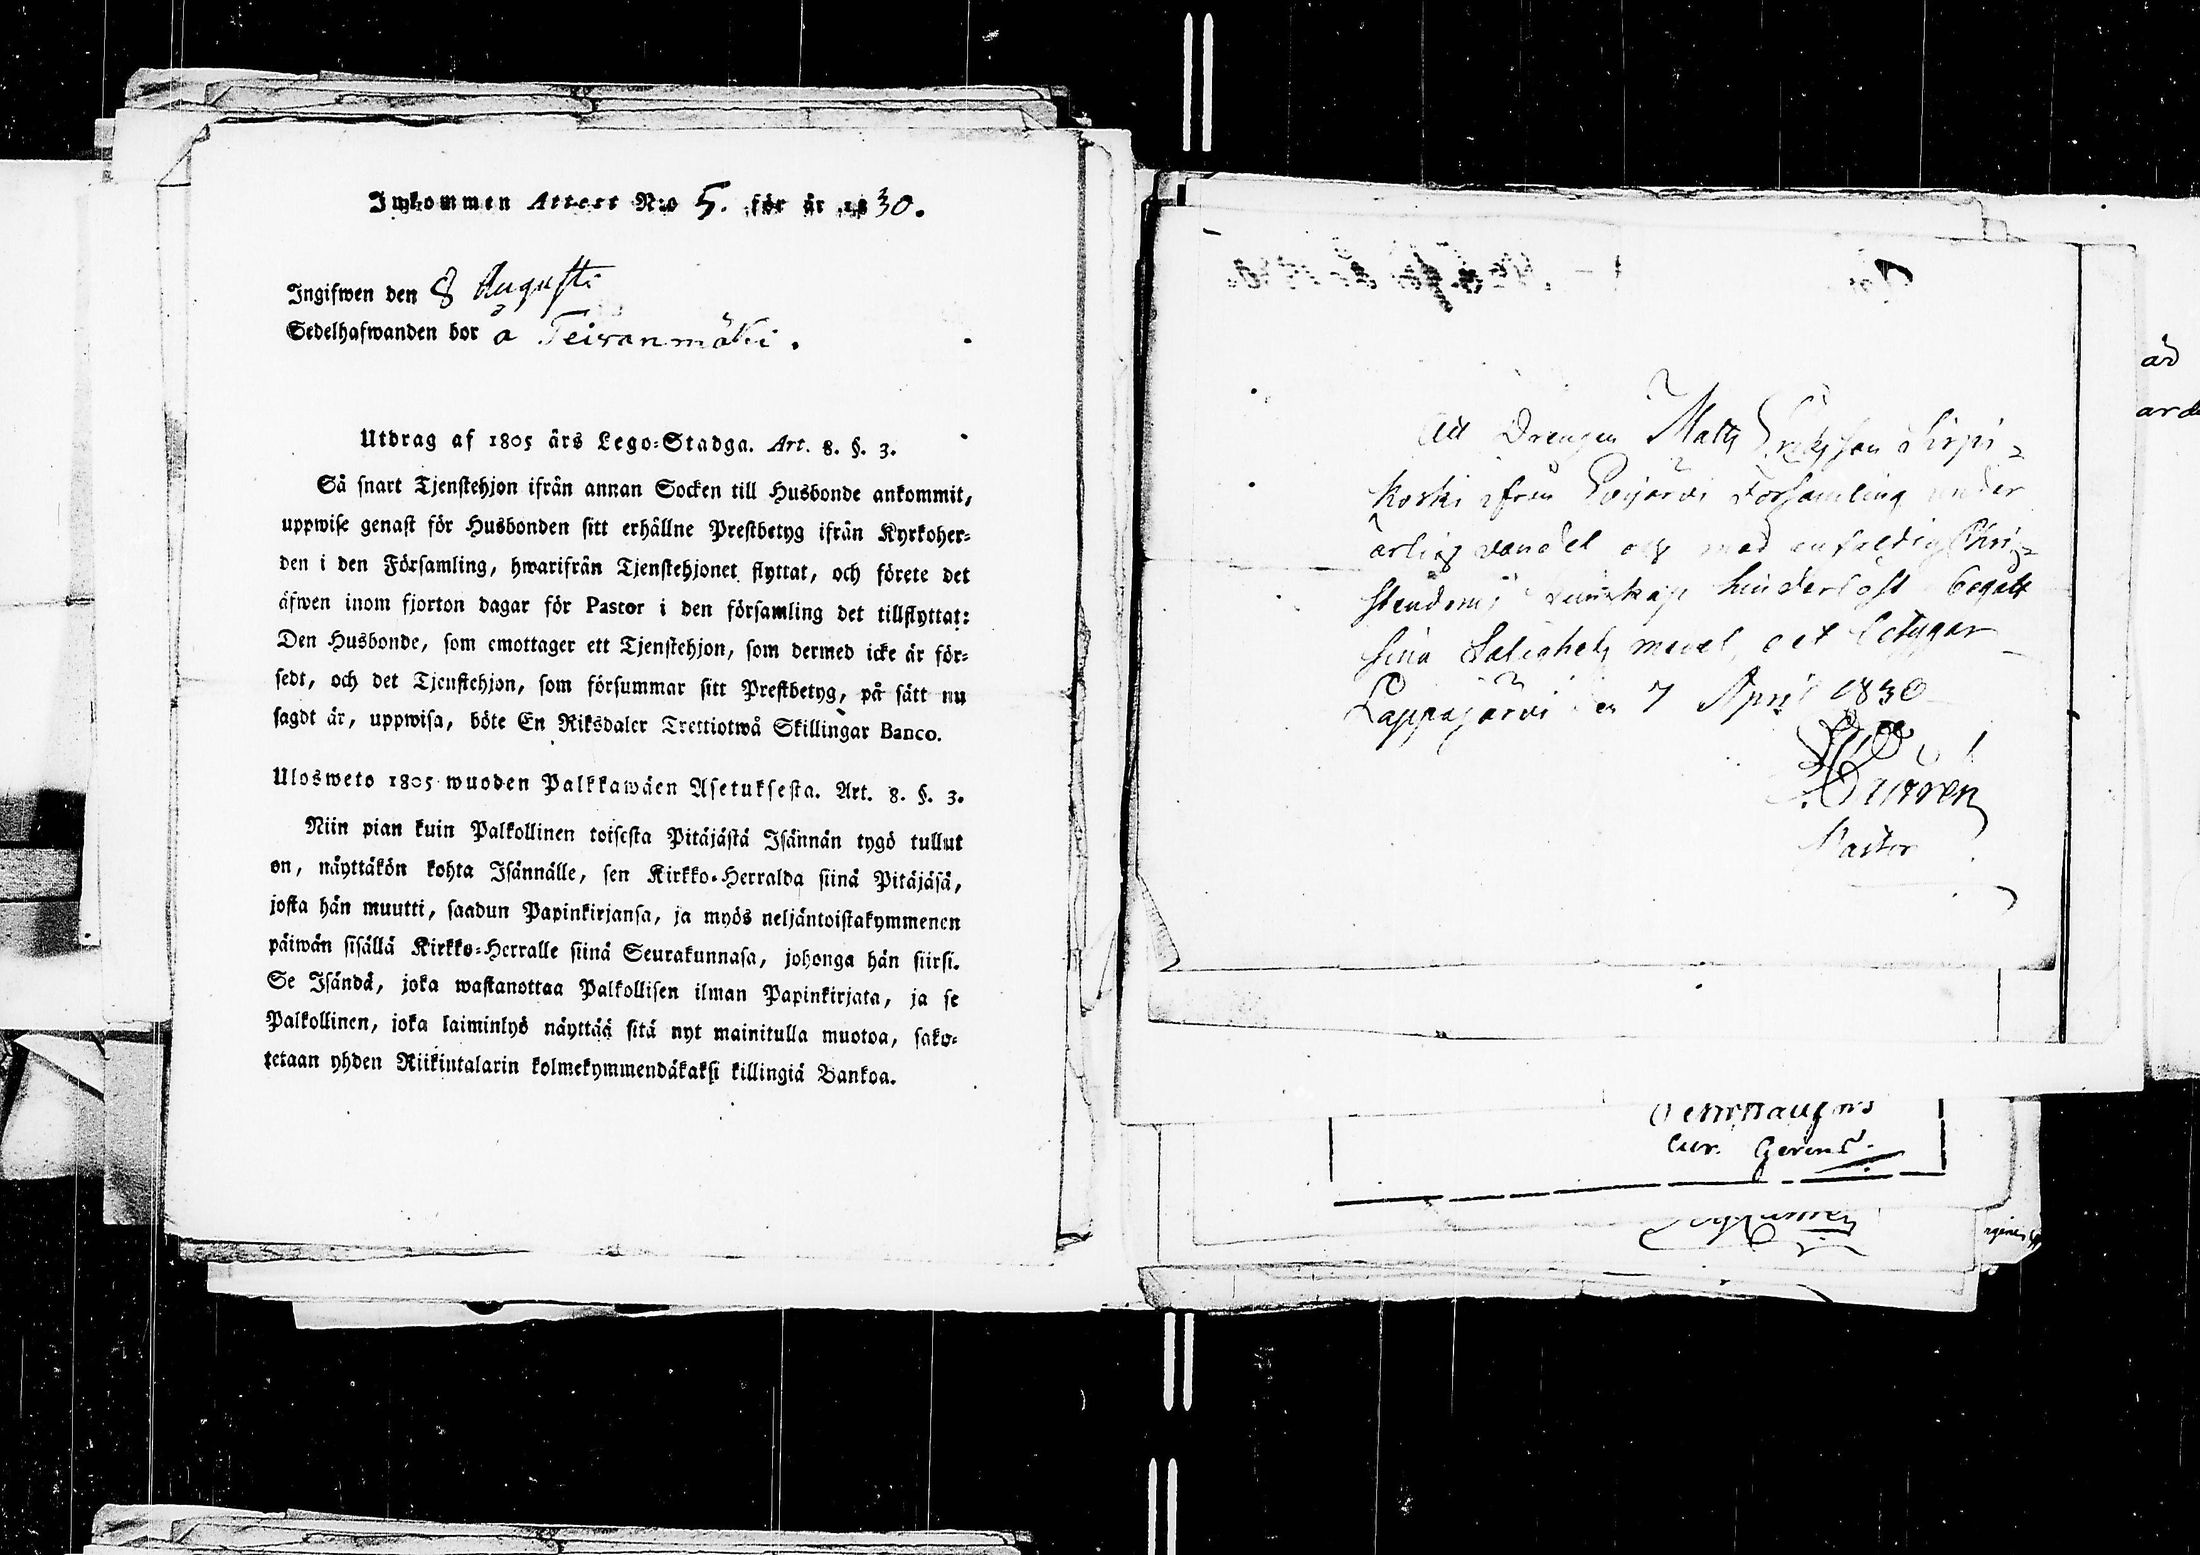 Inkommen Attest N:o 5. för år 1830.
Ingifwen den 8 Augusti
Sedelhafwanden bor å Teiranmäki.
Utdrag af 1805 års Lego-Stadga. Art. 8. §. 3.
Så snart Tjenstehjon ifrån annan Socken till Husbonde ankommit,
uppwise genast för Husbonden sitt erhållne Prestbetyg ifrån Kyrkoher-
den i den Församling, hwarifrån Tjenstehjonet flyttat, och förete det
äfwen inom fjorton dagar för Pastor i den församling det tillflyttat:
Den Husbonde, som emottager ett Tjenstehjon, som dermed icke är för-
sedt, och det Tjenstehjon, som försummar sitt Prestbetyg, på sätt nu
sagdt är, uppwisa, böte En Riksdaler Trettiotwå Skillingar Banco.
Ulosweto 1805 wuoden Palkkawäen Asetuksesta. Art. 8. §. 3.
Niin pian kuin Palkollinen toisesta Pitäjästä Isännän tygö tullut
on, näyttäkön kohta Isännälle, sen Kirkko-Herralda siinä Pitäjäsä,
josta hän muutti, saadun Papinkirjansa, ja myös neljäntoistakymmenen
päiwän sisällä Kirkko-Herralle siinä Seurakunnasa, johonga hän siirsi.
Se Isändä, joka wastanottaa Palkollisen ilman Papinkirjata, ja se
Palkollinen, joka laiminlyö näyttää sitä nyt mainitulla muotoa, sako-
tetaan yhden Riikintalarin kolmekymmendäkaksi killingiä Bankoa.
Att Drengen Matts Ericksson Sirpi-
koski ifrån Evijärvi Församling under
ärlig vandel och med enfaldig Chri-
stendoms kunskap hinderlöst begått
sina Salighets medel, det betygar
Lappajärvi den 7 April 1830
Pastor
Cur. Gerens.
är